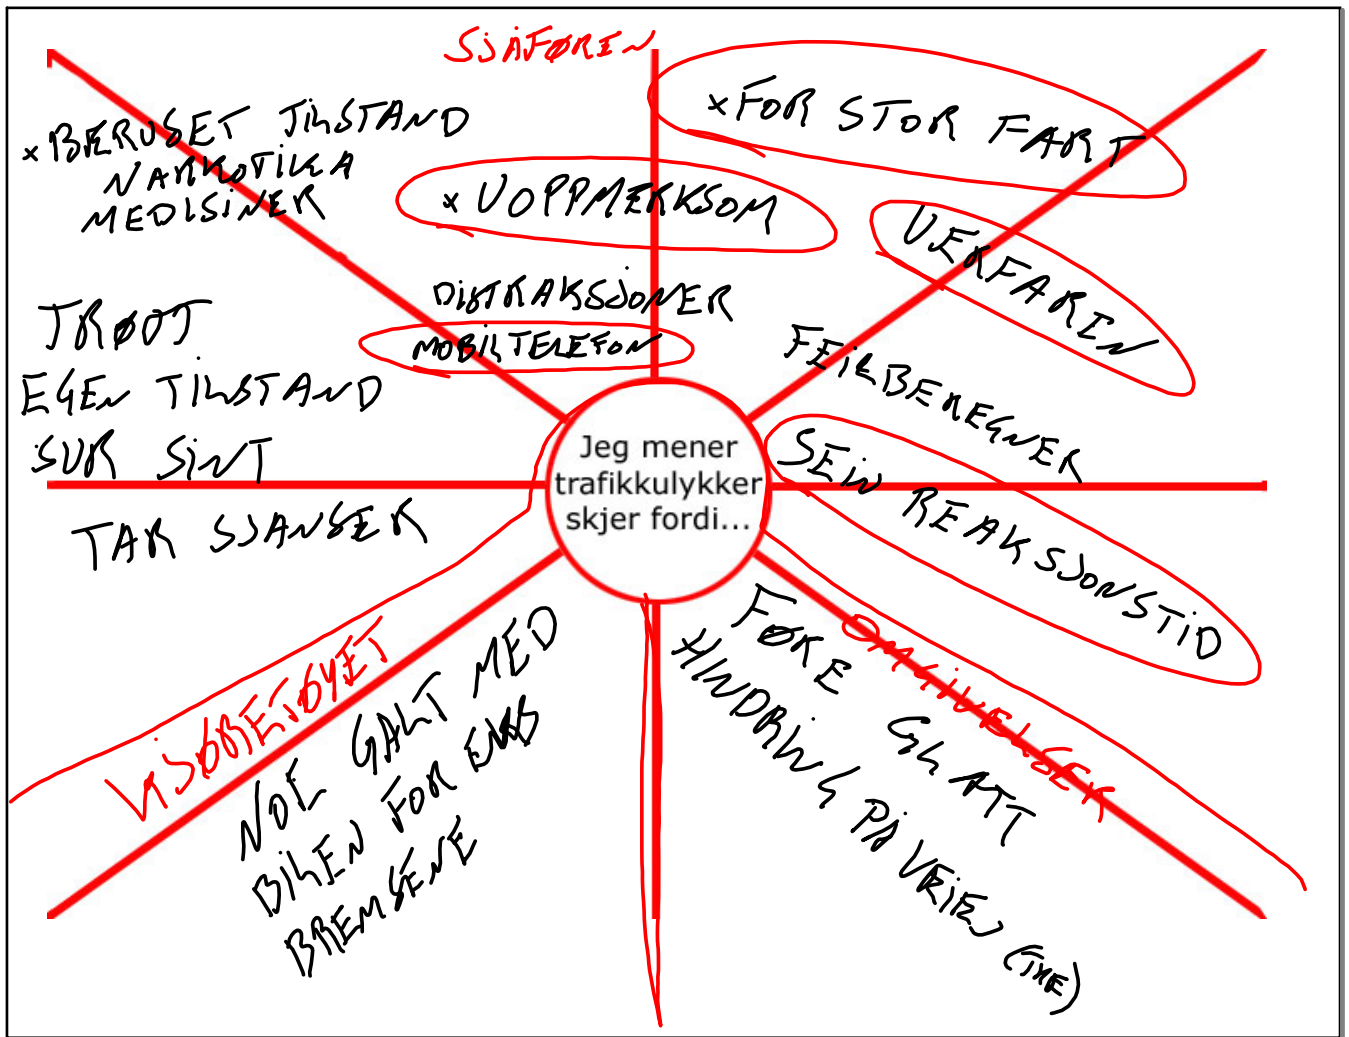 SJÅFØREN
×BERUSET TILSTAND
NARKOTIKA
MEDISINER
×FOR STOR FART
×UOPPMERKSOM
UERFAREN
DISTRAKSJONER
MOBILTELEFON
TRØTT
EGEN TILSTAND
SUR SINT
TAR SJANSER
FEILBEREGNER
SEIN REAKSJONSTID
Jeg mener
trafikkulykker
skjer fordi...
KJØRETØYET
NOE GALT MED
BILEN FOR EKS
BREMSENE
OMGIVELSER
FØRE GLATT
HINDRING PÅ VEIEN